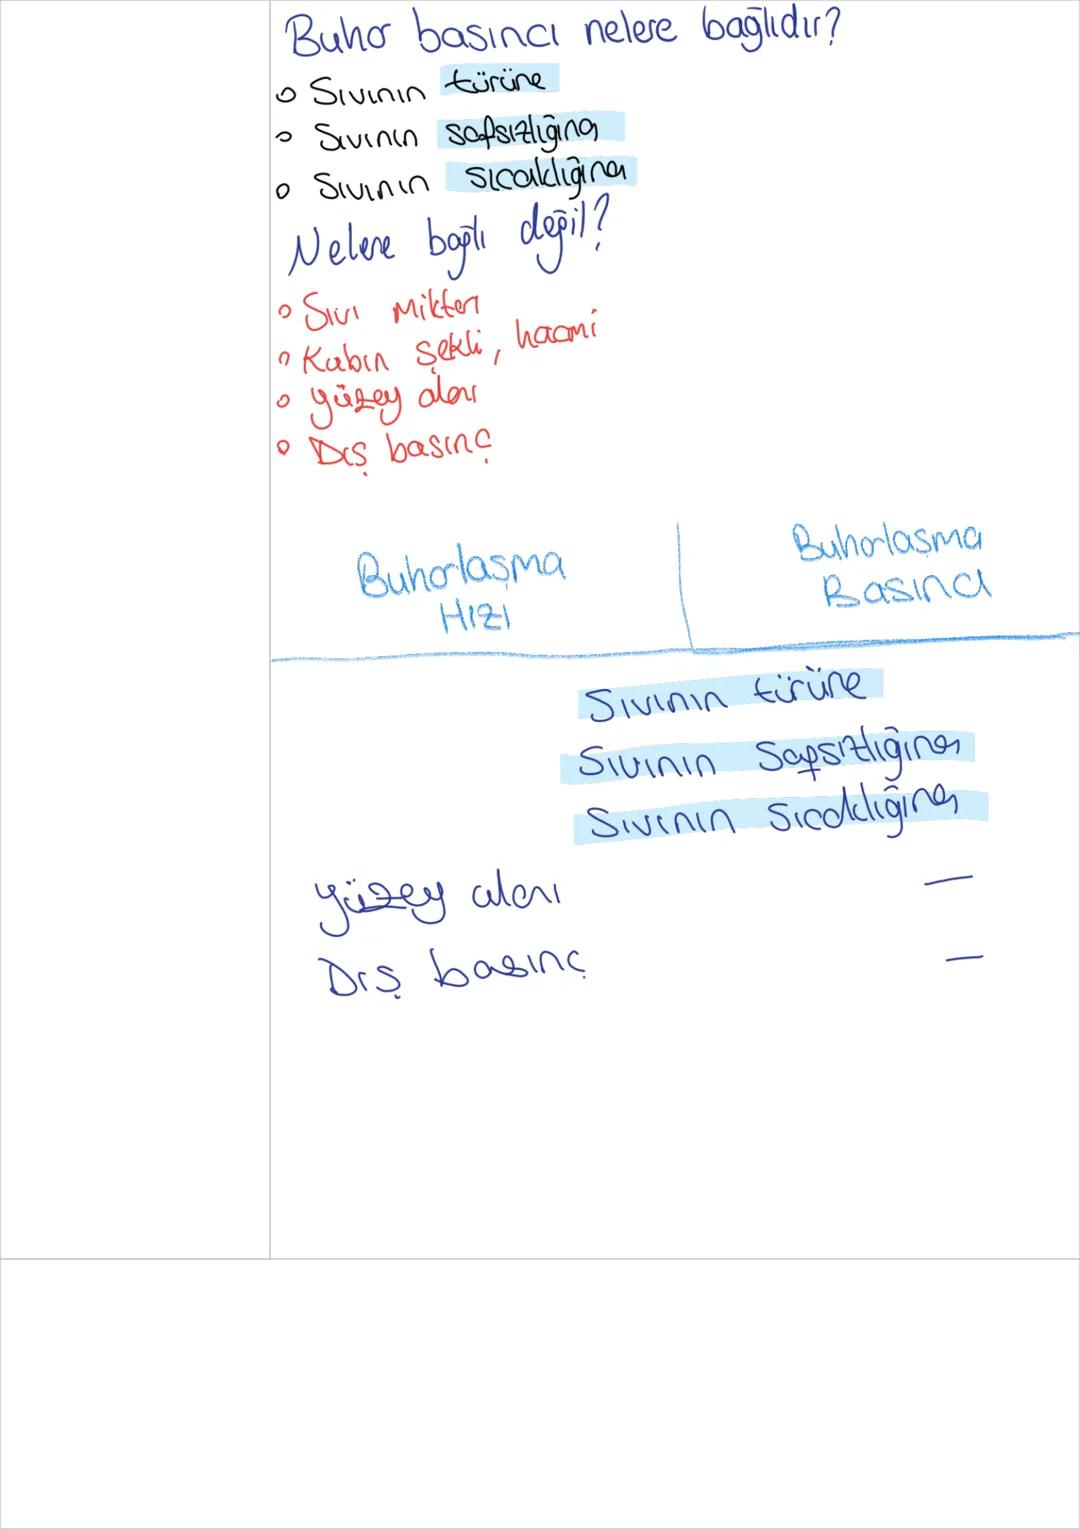 Buhar basıncı nelere bağlıdır?
o Sıvının türüne
o Sıvının safsızlığına
o Sıvının sıcaklığına
Nelere bağlı değil?
o Sıvı miktarı
o Kabın şekli, hacmi
o yüzey alanı
o Dış basınç
Buharlaşma Hızı
Buharlaşma Basıncı
Sıvının türüne
Sıvının Safsızlığına
Sıvının Sıcaklığına
yüzey alanı —
Dış basınç —